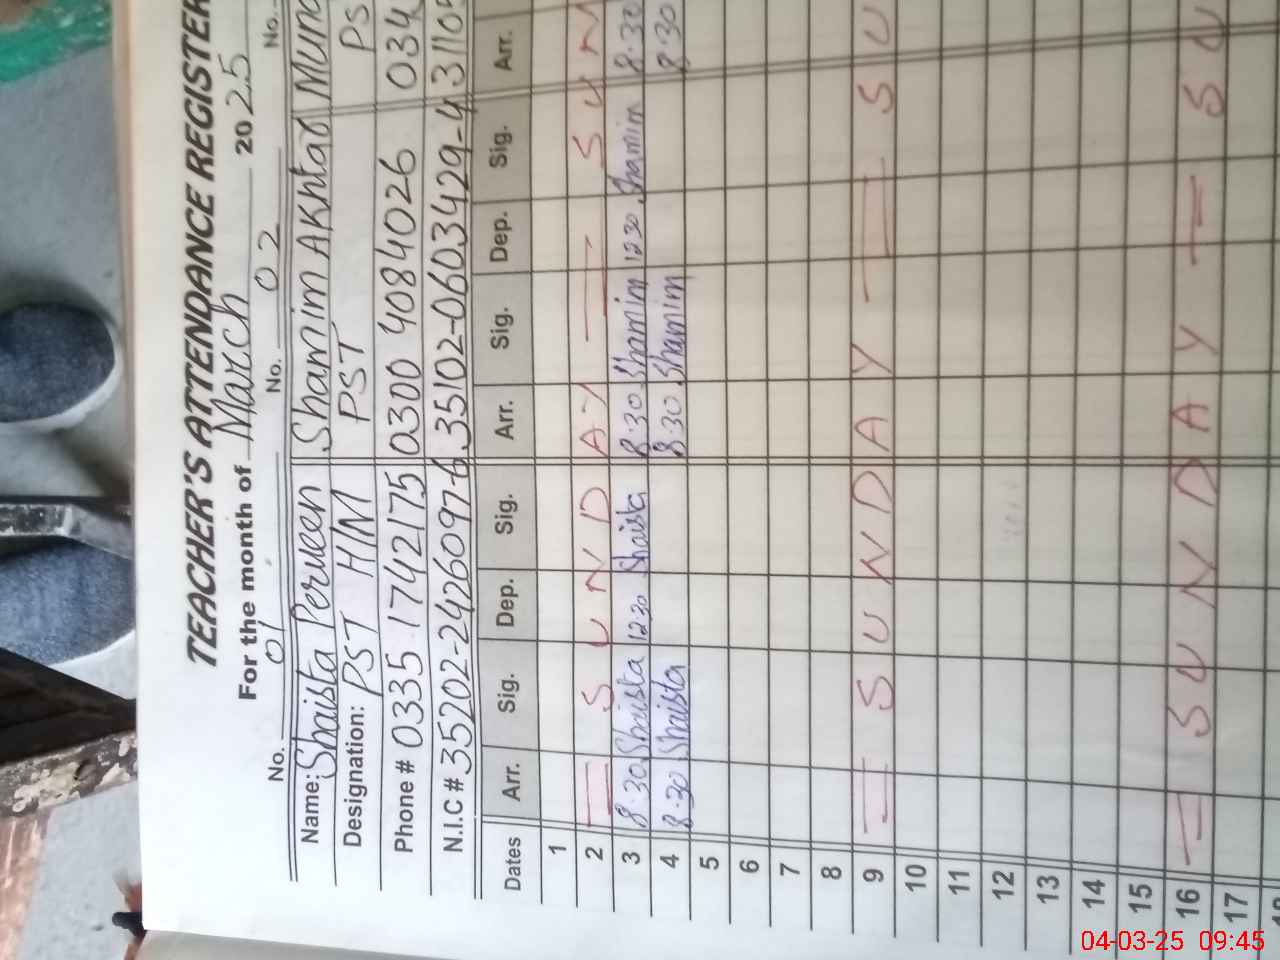 TEACHER'S ATTENDANCE REGISTER
For the month of March 2025
No. 01 No. 02 No.
Name: Shaista Perveen Shamim AKhtar
Designation: PST H/M PST PS
Phone # 0335 1742175 0300 4084026 034
N.I.C # 35202-2426097-6 35102-0603429-4 3110
Dates Arr. Sig. Dep. Sig. Arr. Sig. Dep. Sig. Arr.
1
2 SUNDAY SUN
3 8.30 Shaista 12.30 Shaista 8.30 Shamim 12.30 Shamim 8.30
4 8.30 Shaista 8.30 Shamim 8.30
5
6
7
8
9 SUNDAY SU
10
11
12
13
14
15
16 SUNDAY SU
17
04-03-25 09:45